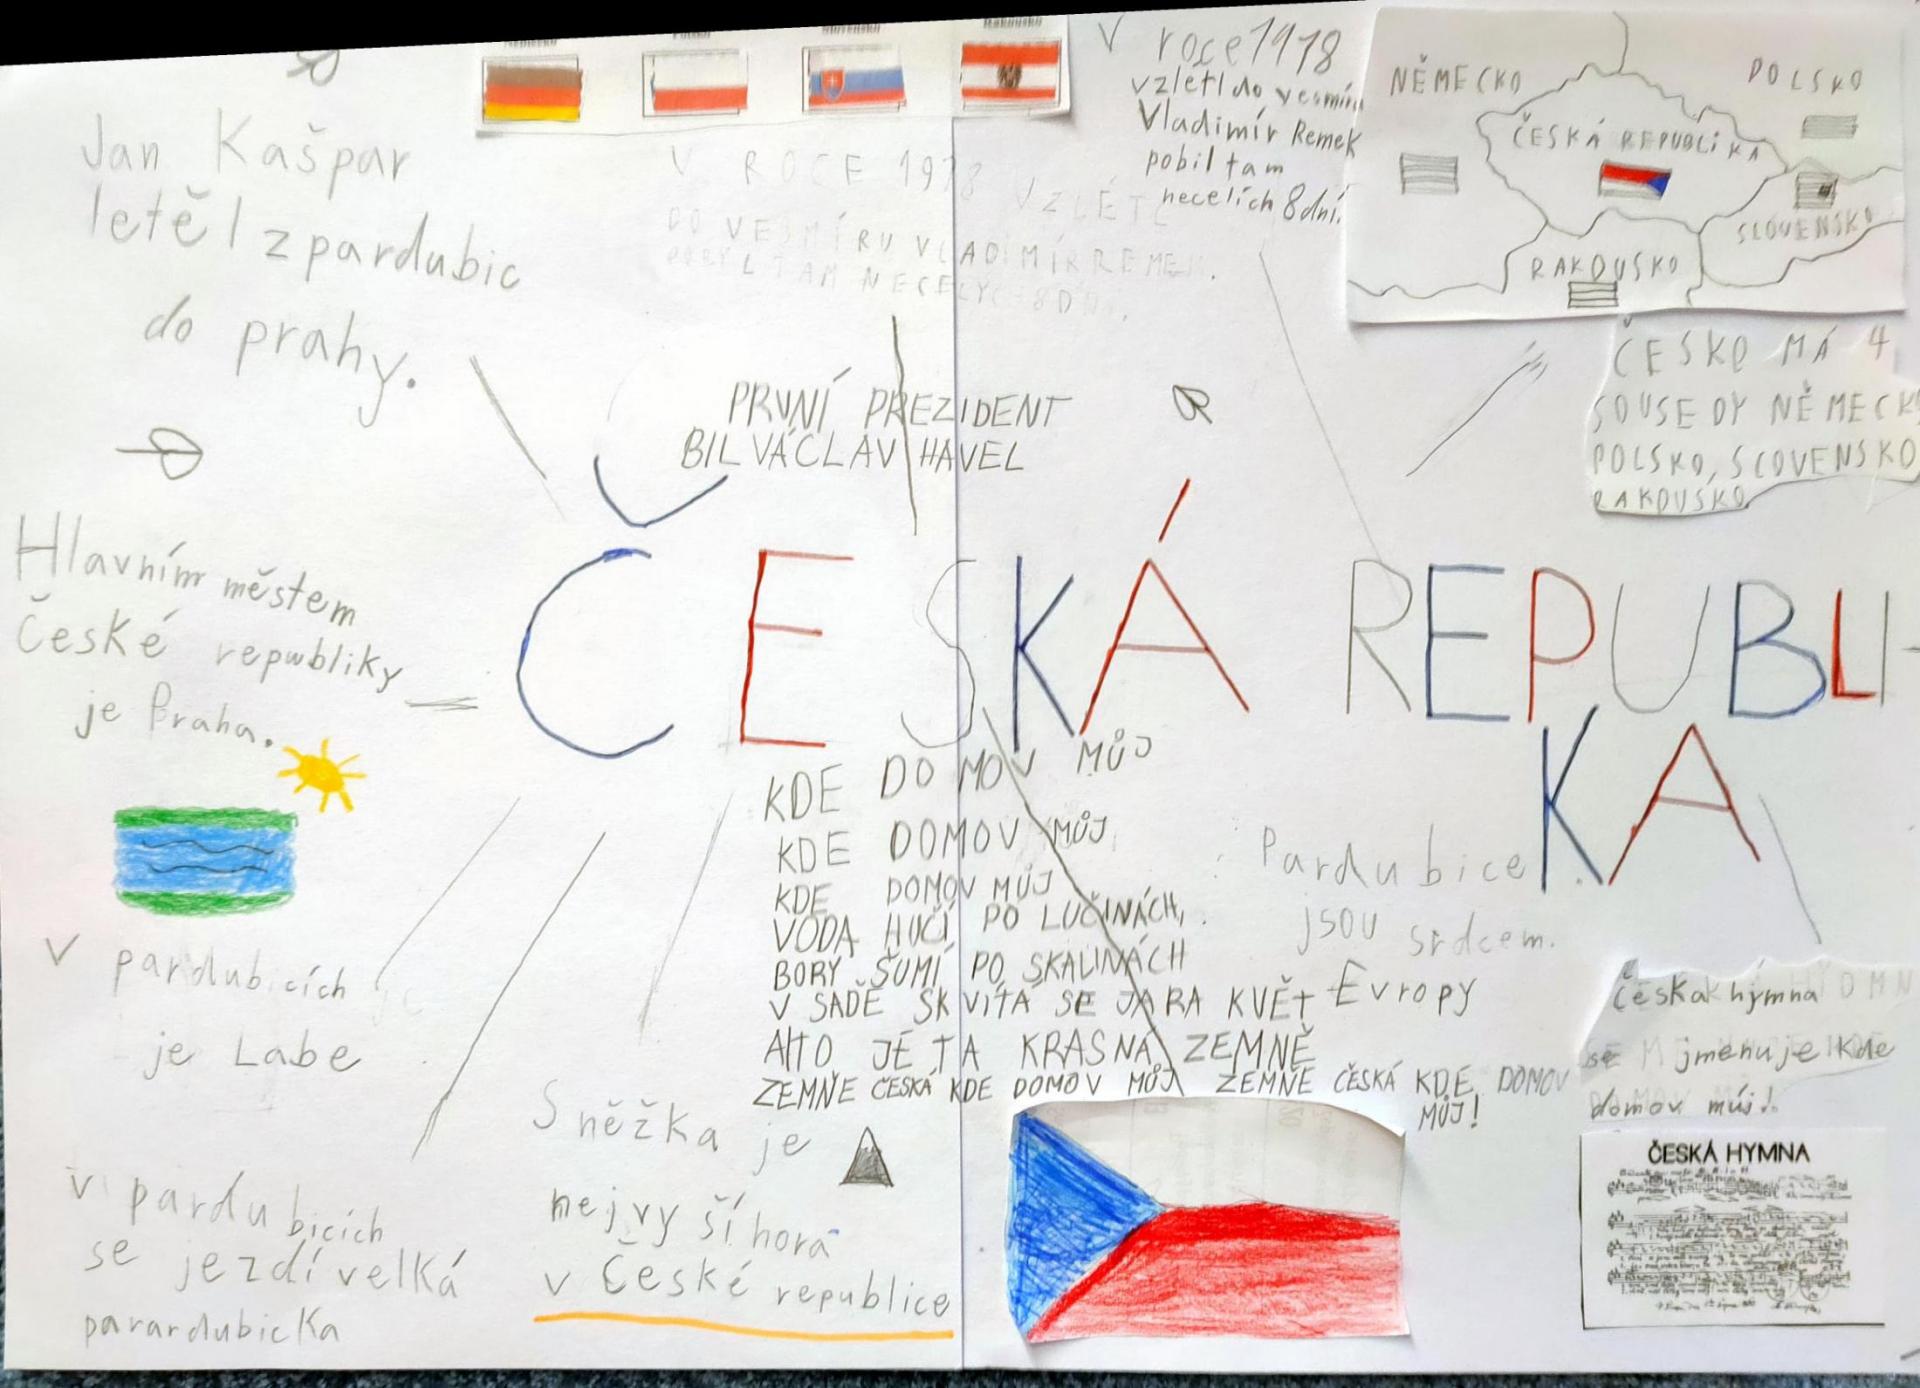 Německo
Polsko
Slovensko
Rakousko
V roce 1978
vzlétl do vesmíru
Vladimír Remek
pobil tam
necelích 8 dní.
NĚMECKO
POLSKO
ČESKÁ REPUBLIKA
SLOVENSKO
RAKOUSKO
Jan Kašpar
letěl z pardubic
do prahy.
V ROCE 1978 VZLÉTL
DO VESMÍRU VLADIMÍR REMEK.
POBYL TAM NECELÝCH 8 DNÍ.
ČESKO MÁ 4
SOUSEDY NĚMECKO
POLSKO, SLOVENSKO
RAKOUSKO
PRVNÍ PREZIDENT
BIL VÁCLAV HAVEL
Hlavním městem
České republiky
je Praha.
ČESKÁ REPUBLI-
KA
KDE DOMOV MŮJ
KDE DOMOV MŮJ
KDE DOMOV MŮJ
VODA HUČÍ PO LUČINÁCH,
BORY ŠUMÍ PO SKALINÁCH
V SADĚ SKVÍTÁ SE JARA KVĚT
ATO JE TA KRASNÁ ZEMNĚ
ZEMNĚ ČESKÁ KDE DOMOV MŮJ ZEMNĚ ČESKÁ KDE DOMOV
MŮJ!
Pardubice
jsou srdcem.
Evropy
V pardubicích je
je Labe
Česká hymna
se jmenuje kde
domov múj!
Sněžka je
nejvyší hora
v České republice
v pardubicích
se jezdí velká
parardubicka
ČESKÁ HYMNA